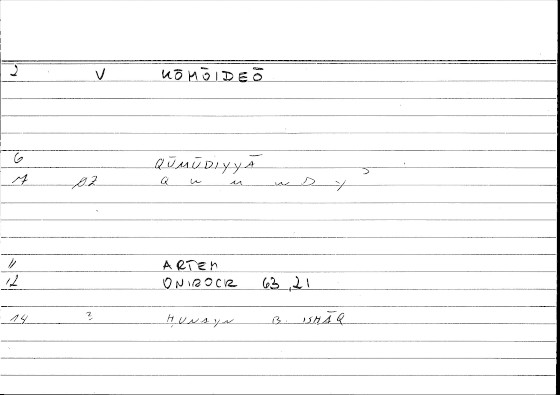 2 V KŌMŌIDEŌ
6 QŪMŪDIYYĀ
M 02 Q W M W D Y ʾ
11 ARTEM
12 ONIROCR 63,21
14 2 ḤUNAYN B. ISḤĀQ